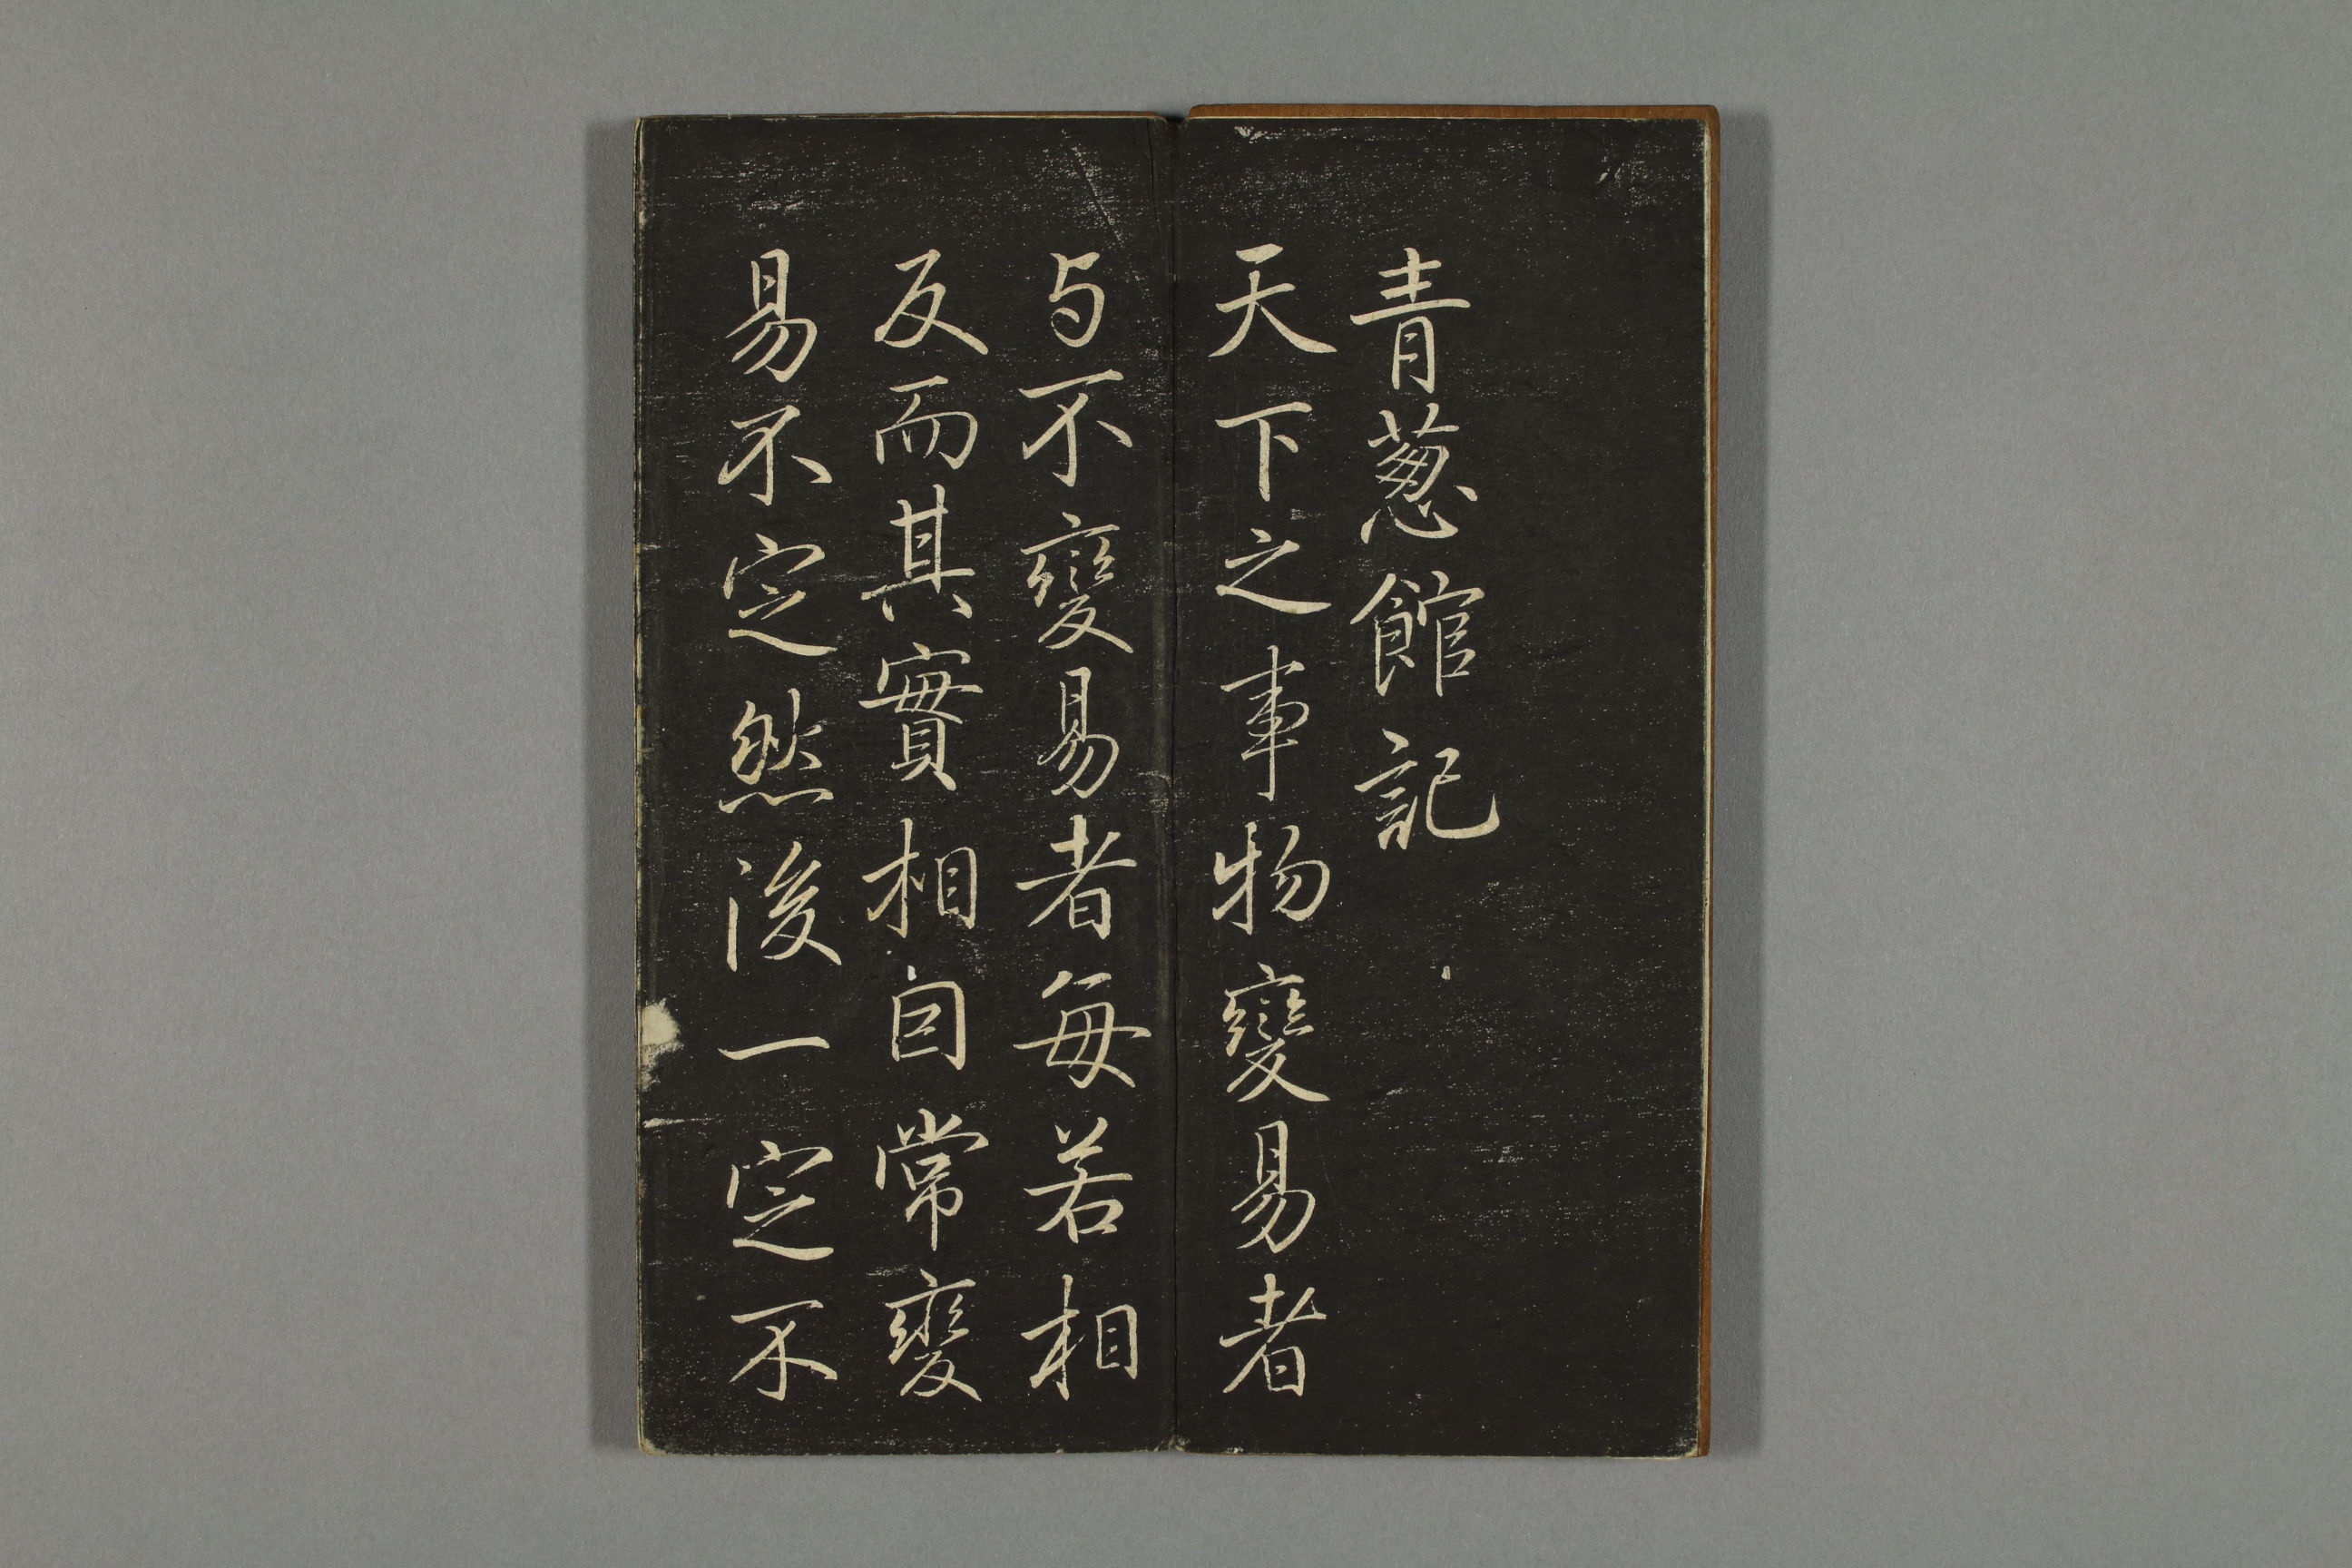 青葱館記
天下之事物變易者
与不變易者每若相
反而其實相因常變
易不定然後一定不